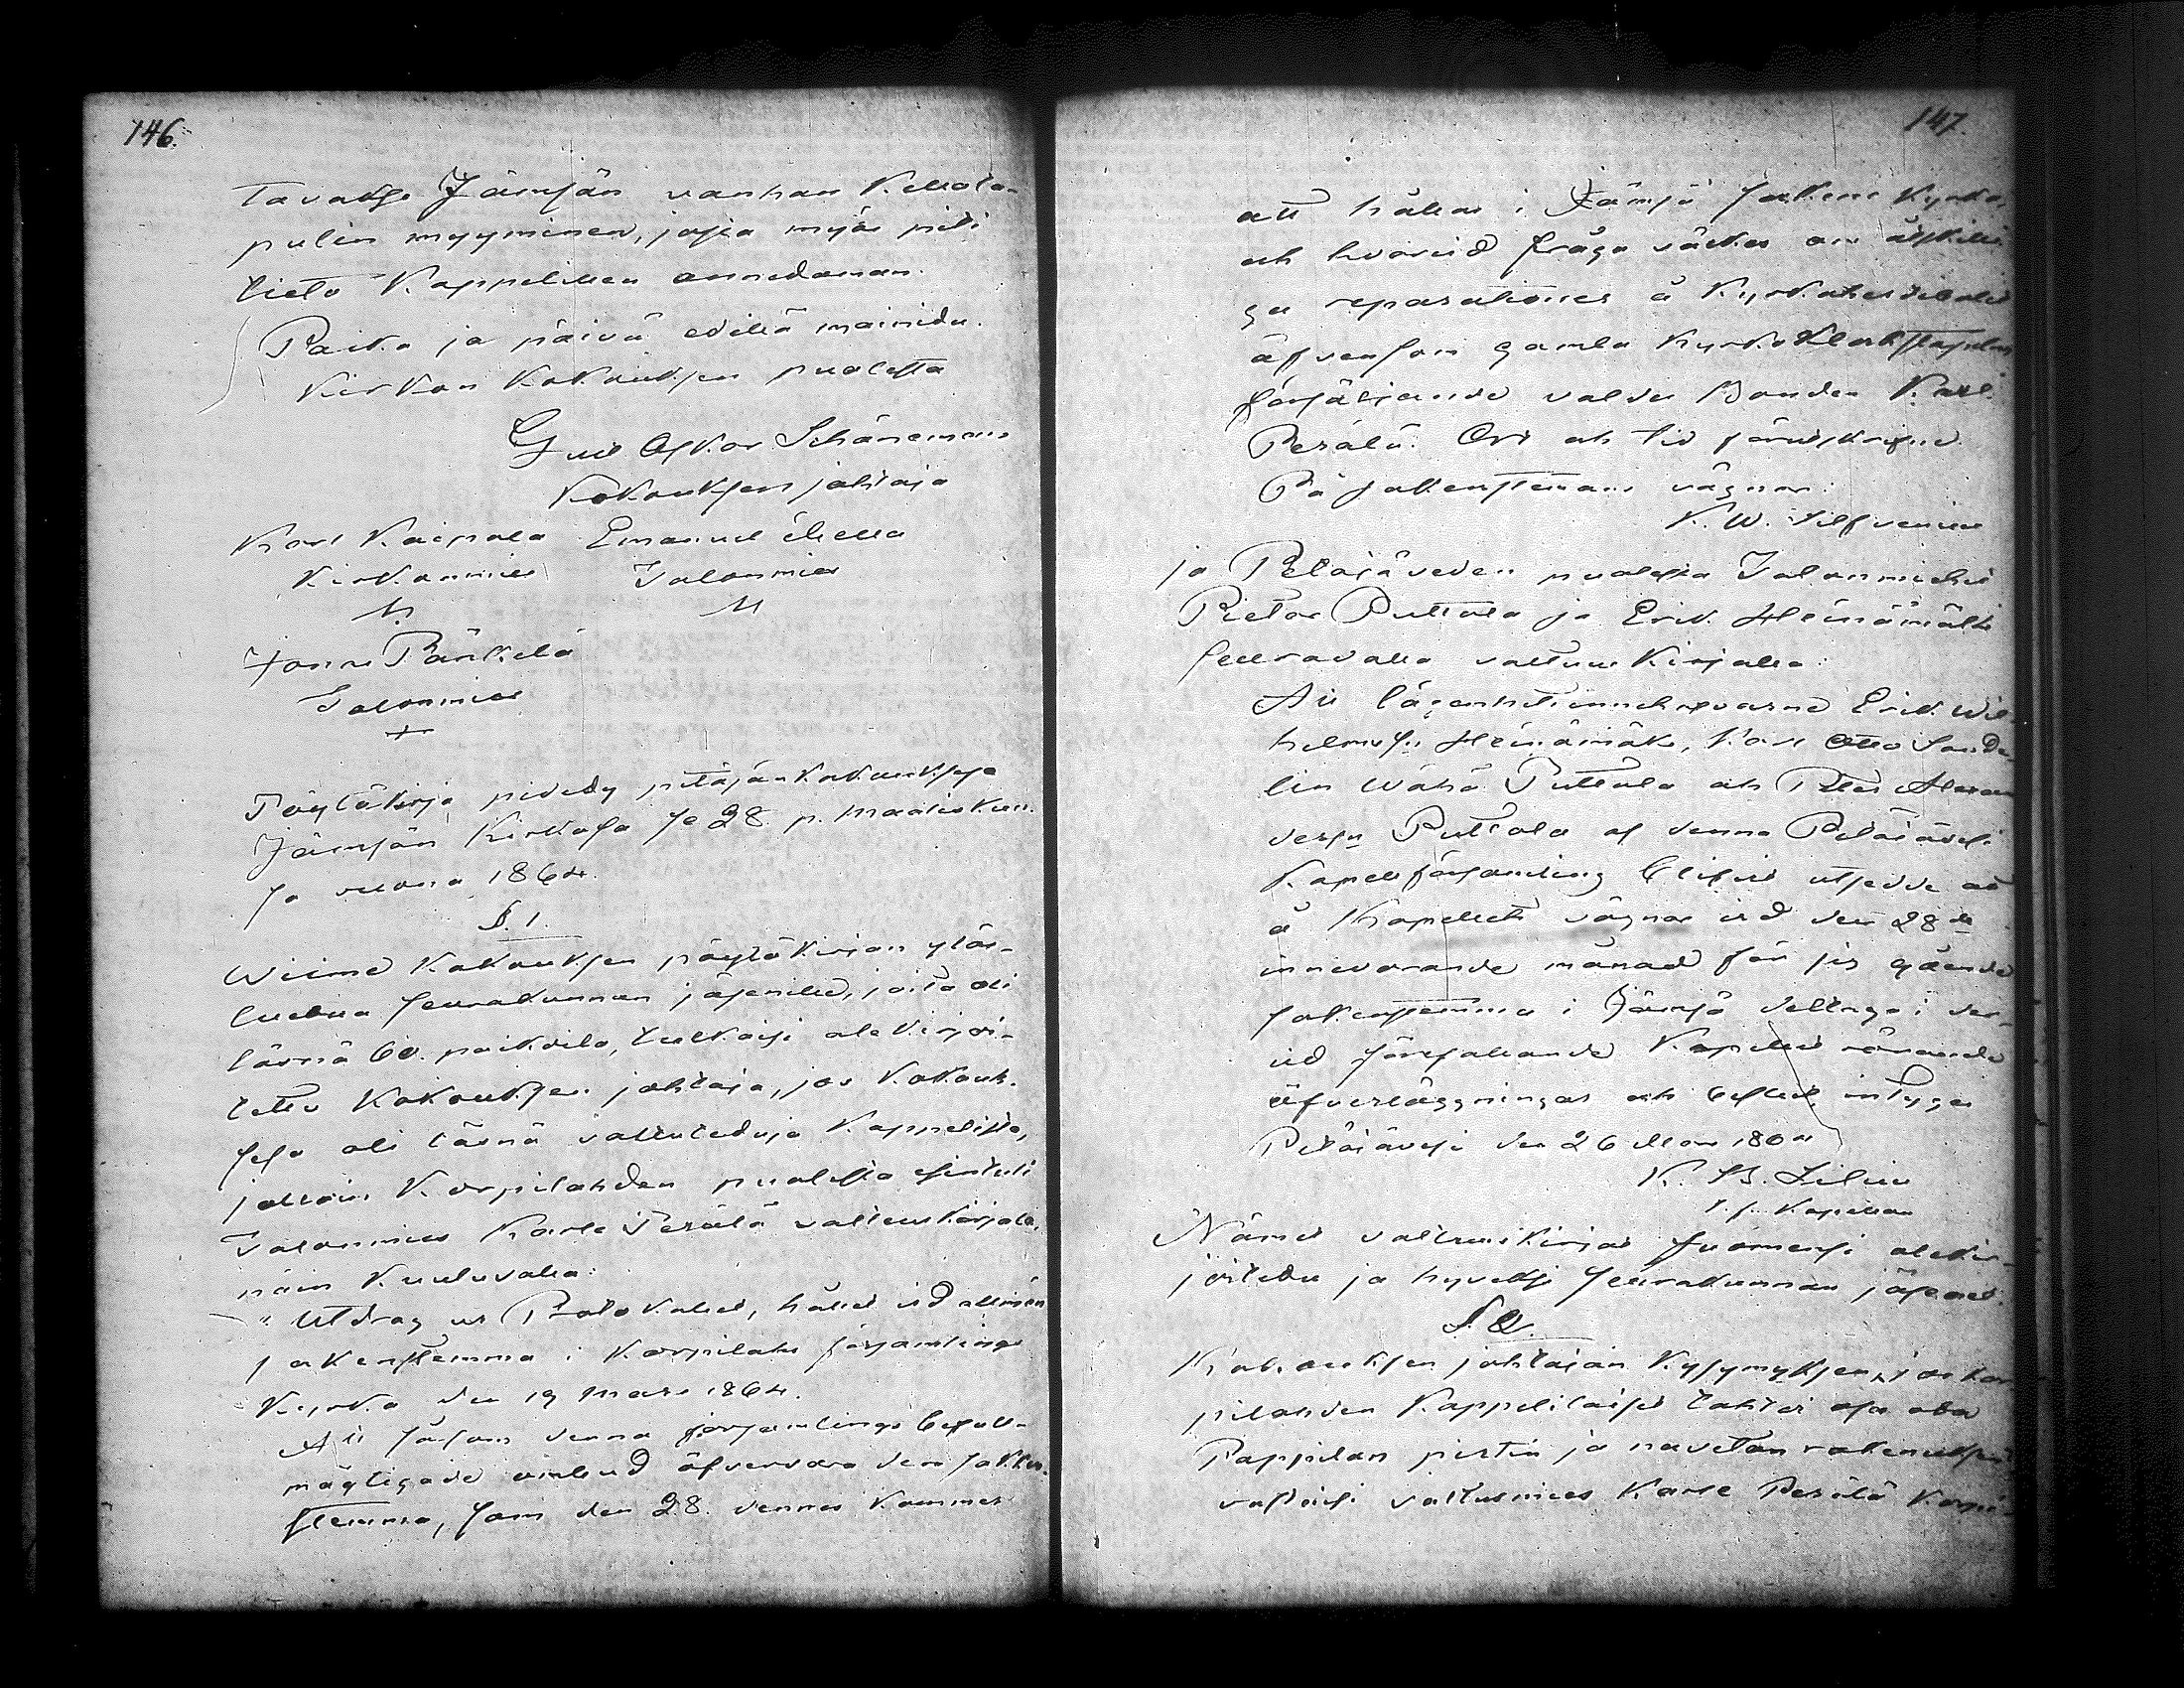 146.
tavakse Jämsän vanhan Kellota-
pulin myyminen, josa myös piti
tieto Kappelillen annedaman.
Paika ja päivä edellä mainidu.
Kirkon Kokouksen puolesta
Gust Oskar Schöneman
Kokouksen johtaja
Karl Kaipola Emanuel
Kirkonmies Talonmies
Jonne Pänkelä
Talonmies
Pöytäkirja pidedy pitäjänkokouksesa
Jämsän Kirkosa se 28 p. Maaliskuu.
sa vuonna 1864.
§. 1.
Wiime Kokouksen pöytäkirjan yläs-
luetua seurakunnan jäsenille, joita oli
läsnä 60. paikoila, tutkaisi alekirjoi-
tettu Kokouksen johtaja, jos Kokouk-
sesa oli läsnä valtuteduja Kappelista,
jolloin Korpilahden puolesta esintuli
Talonmies Karle Perälä valtuuskirjala,
näin kuuluvalla:
"Utdrag ur Protokollet, hållet vid allmän
sokenstemma i Korpilaks församlings
Kyrka den 19 Mars 1864.
Att såsom denna församlings befull-
mägtigade ombud öfvervara den sokken-
stemma, som den 28. dennes kommer
147.
att hållas i Jämsä sockens Kyrka,
och hvarvid fråga väckes om åtskilli-
ga reparationer å Kyrkoherdebolet
äfvensom gamla Kyrko Klockstapelns
försäljande valdes Bonden Karl
Perälä. Ort och tid förutskrifne.
På sokenstemmans vägnar:
K. W. Silfvenius
ja Petäjäveden puolesta Talonmiehet
Pietar Puttola ja Erik Heinämäki
seuravalla valtuuskirjalla:
Att lägenhetsinnehafvarne Erik Wil-
helmsson Heinämäki, Karl Otto Sande-
lin Wähä Puttola och Petter
Puttola af denna Petäjävesi
Kapellförsamling blifvit utsedde att
å Kapellets vägnar vid den 28de
innevarande månad för sig gående
sokenstemma i Jämsä deltaga i der-
vid förefallande Kapellet rörande
öfverläggningar och beslut intygar
Petäjävesi den 26 Mars 1864
K. B. Lilius
V. f. Kapellan
Nämät valtuuskirjat Suomensi alekir-
joitetu ja hyväksi seurakunnan jäsenet.
§. 2.
Kokouksen johtajan kysymyksen, jos Kor-
pilahden Kappelilaiset tahtoi osa otta
Pappilan pirtin ja navetan rakenukseen,
vastaisi valtusmies Karle Perälä Korpi-